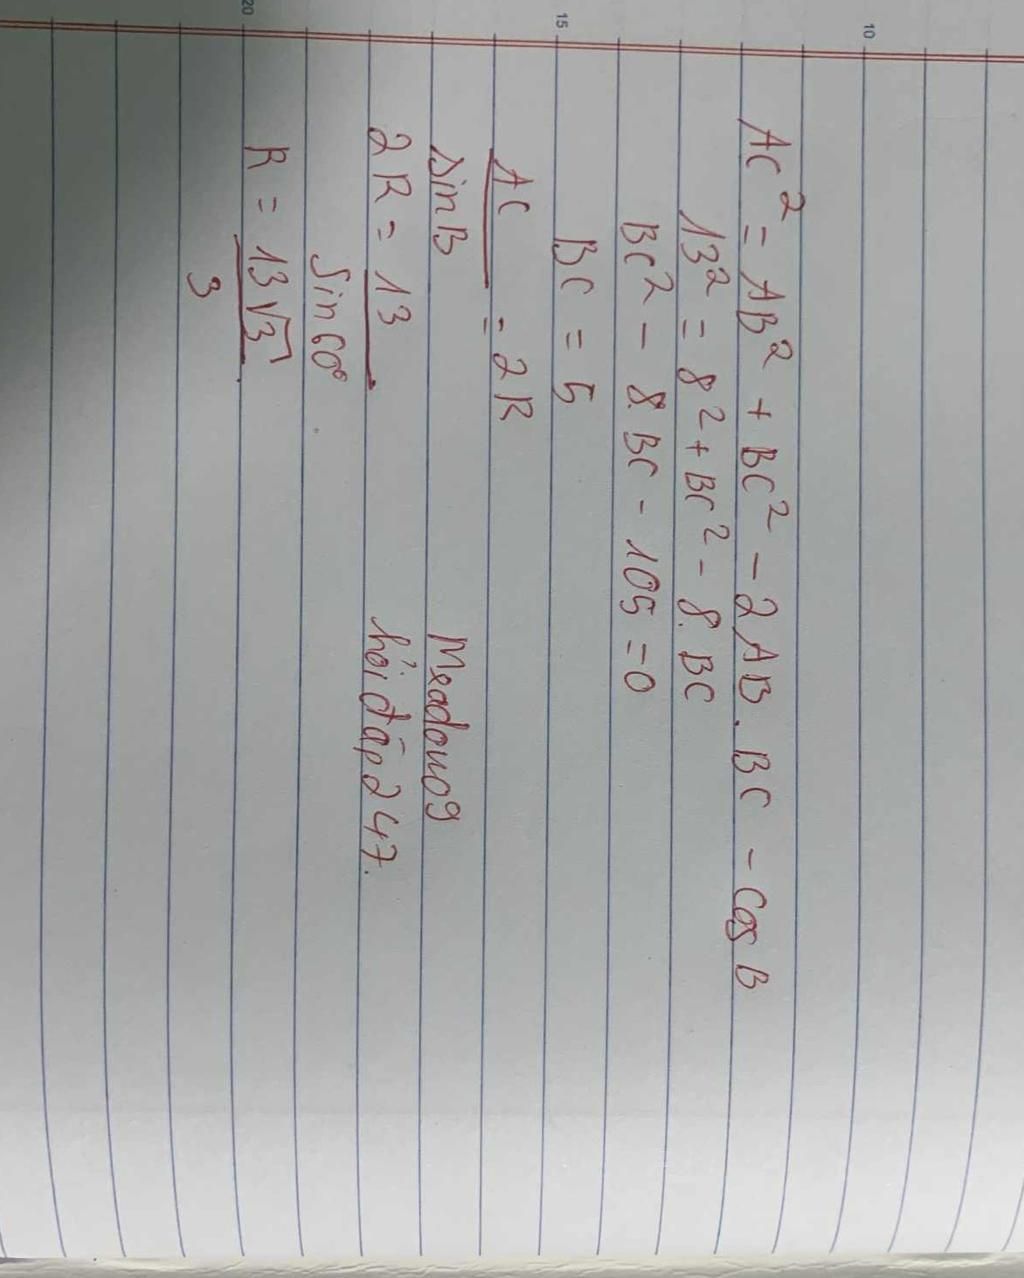 AC² = AB² + BC² - 2AB.BC - cosB
13² = 8² + BC² - 8.BC
BC² - 8.BC - 105 = 0
BC = 5
AC
sinB = 2R
2R = 13
sin60°
R = 13√3
3
Meadow09
hỏi đáp 247.
10
15
20